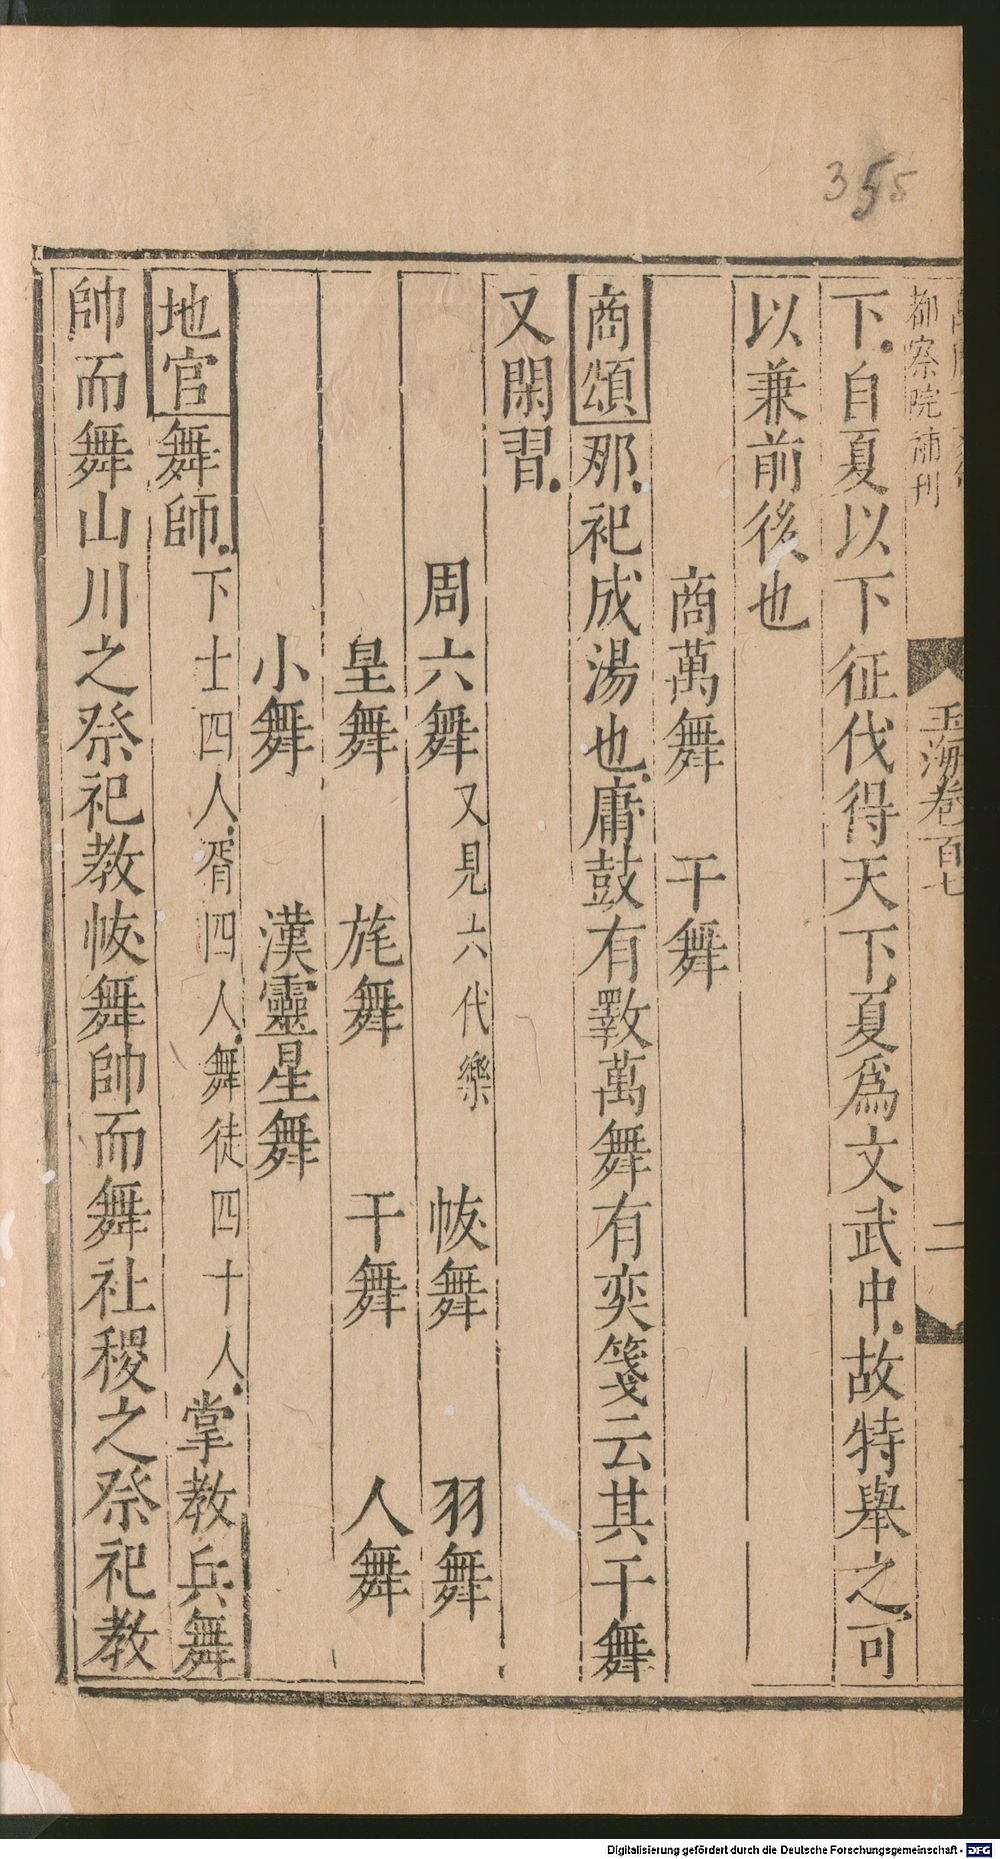 355
都察院補刊
玉海卷百七
二
下自夏以下征伐得天下夏爲文武中故特舉之可
以兼前後也
商萬舞　干舞
商頌那祀成湯也庸鼓有斁萬舞有奕箋云其干舞
又閑習
周六舞又見六代樂　帗舞　羽舞
皇舞　旄舞　干舞　人舞
小舞　漢靈星舞
地官舞師下士四人胥四人舞徒四十人掌教兵舞
帥而舞山川之祭祀教帗舞帥而舞社稷之祭祀教
Digitalisierung gefördert durch die Deutsche Forschungsgemeinschaft - DFG